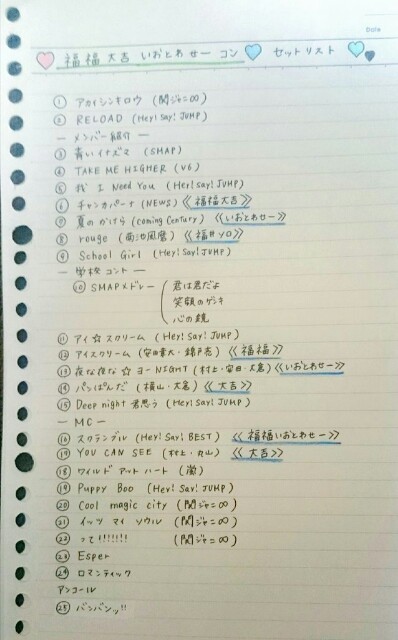 Date
福福大吉 いおとわせー コン セットリスト
① アカイシンキロウ (関ジャニ∞)
② RELOAD (Hey! Say! JUMP)
— メンバー紹介 —
③ 青いイナズマ (SMAP)
④ TAKE ME HIGHER (V6)
⑤ 我 I Need You (Hey! Say! JUMP)
⑥ チャンカパーナ (NEWS) 《福福大吉》
⑦ 夏のかけら (Coming Century) 《いおとわせー》
⑧ rouge (菊池風磨) 《福井ソロ》
⑨ School Girl (Hey! Say! JUMP)
— 学校コント —
⑩ SMAPメドレー
君は君だよ
笑顔のゲンキ
心の鏡
⑪ アイ☆スクリーム (Hey! Say! JUMP)
⑫ アイスクリーム (安田章大・錦戸亮) 《福福》
⑬ 夜な夜なヨーNIGHT (村上・安田・大倉) 《いおとわせー》
⑭ パンぱんだ (横山・大倉) 《大吉》
⑮ Deep night 君思う (Hey! Say! JUMP)
— MC —
⑯ スクランブル (Hey! Say! BEST) 《福福いおとわせー》
⑰ YOU CAN SEE (村上・丸山) 《大吉》
⑱ ワイルド アット ハート (嵐)
⑲ Puppy Boo (Hey! Say! JUMP)
⑳ Cool magic city (関ジャニ∞)
㉑ イッツ マイ ソウル (関ジャニ∞)
㉒ って!!!!!!! (関ジャニ∞)
㉓ Esper
㉔ ロマンティック
アンコール
㉕ バンバンッ!!